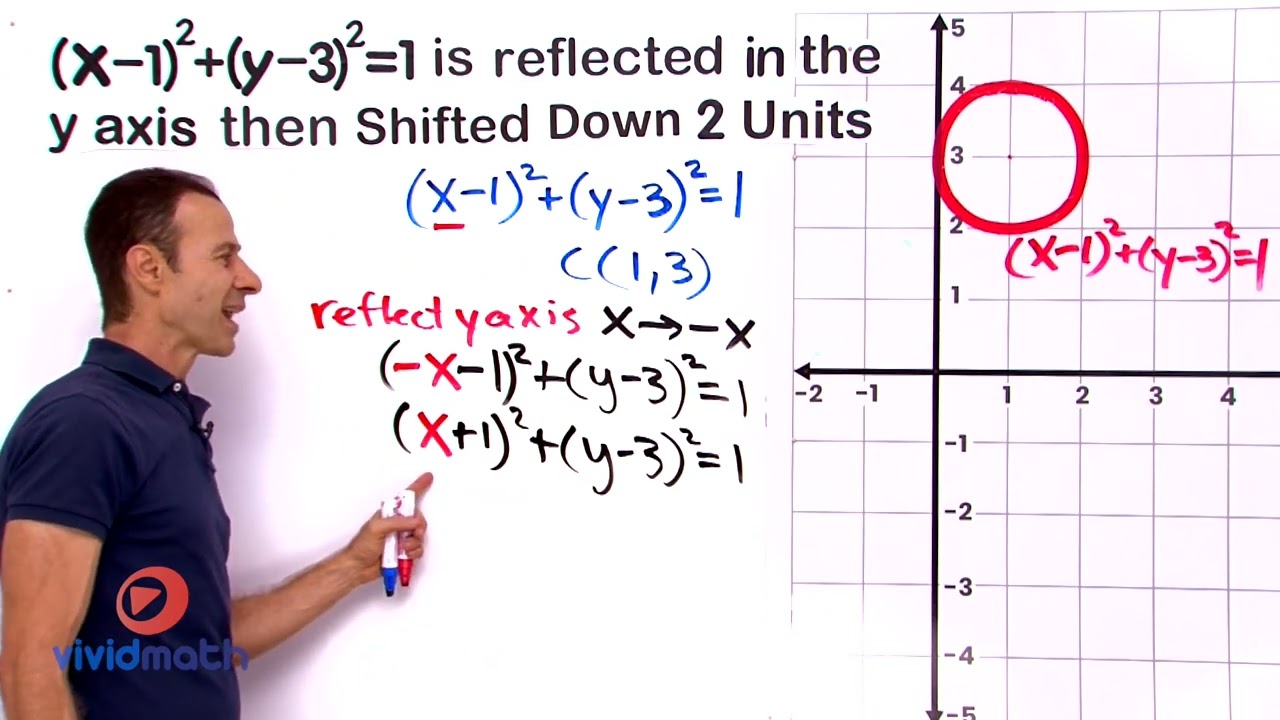 (x-1)²+(y-3)²=1 is reflected in the
y axis then Shifted Down 2 Units
(x-1)²+(y-3)²=1
C(1,3)
reflect y axis x→-x
(-x-1)²+(y-3)²=1
(x+1)²+(y-3)²=1
vividmath
5
4
3
2
(x-1)²+(y-3)²=1
1
-2 -1 1 2 3 4
-1
-2
-3
-4
-5